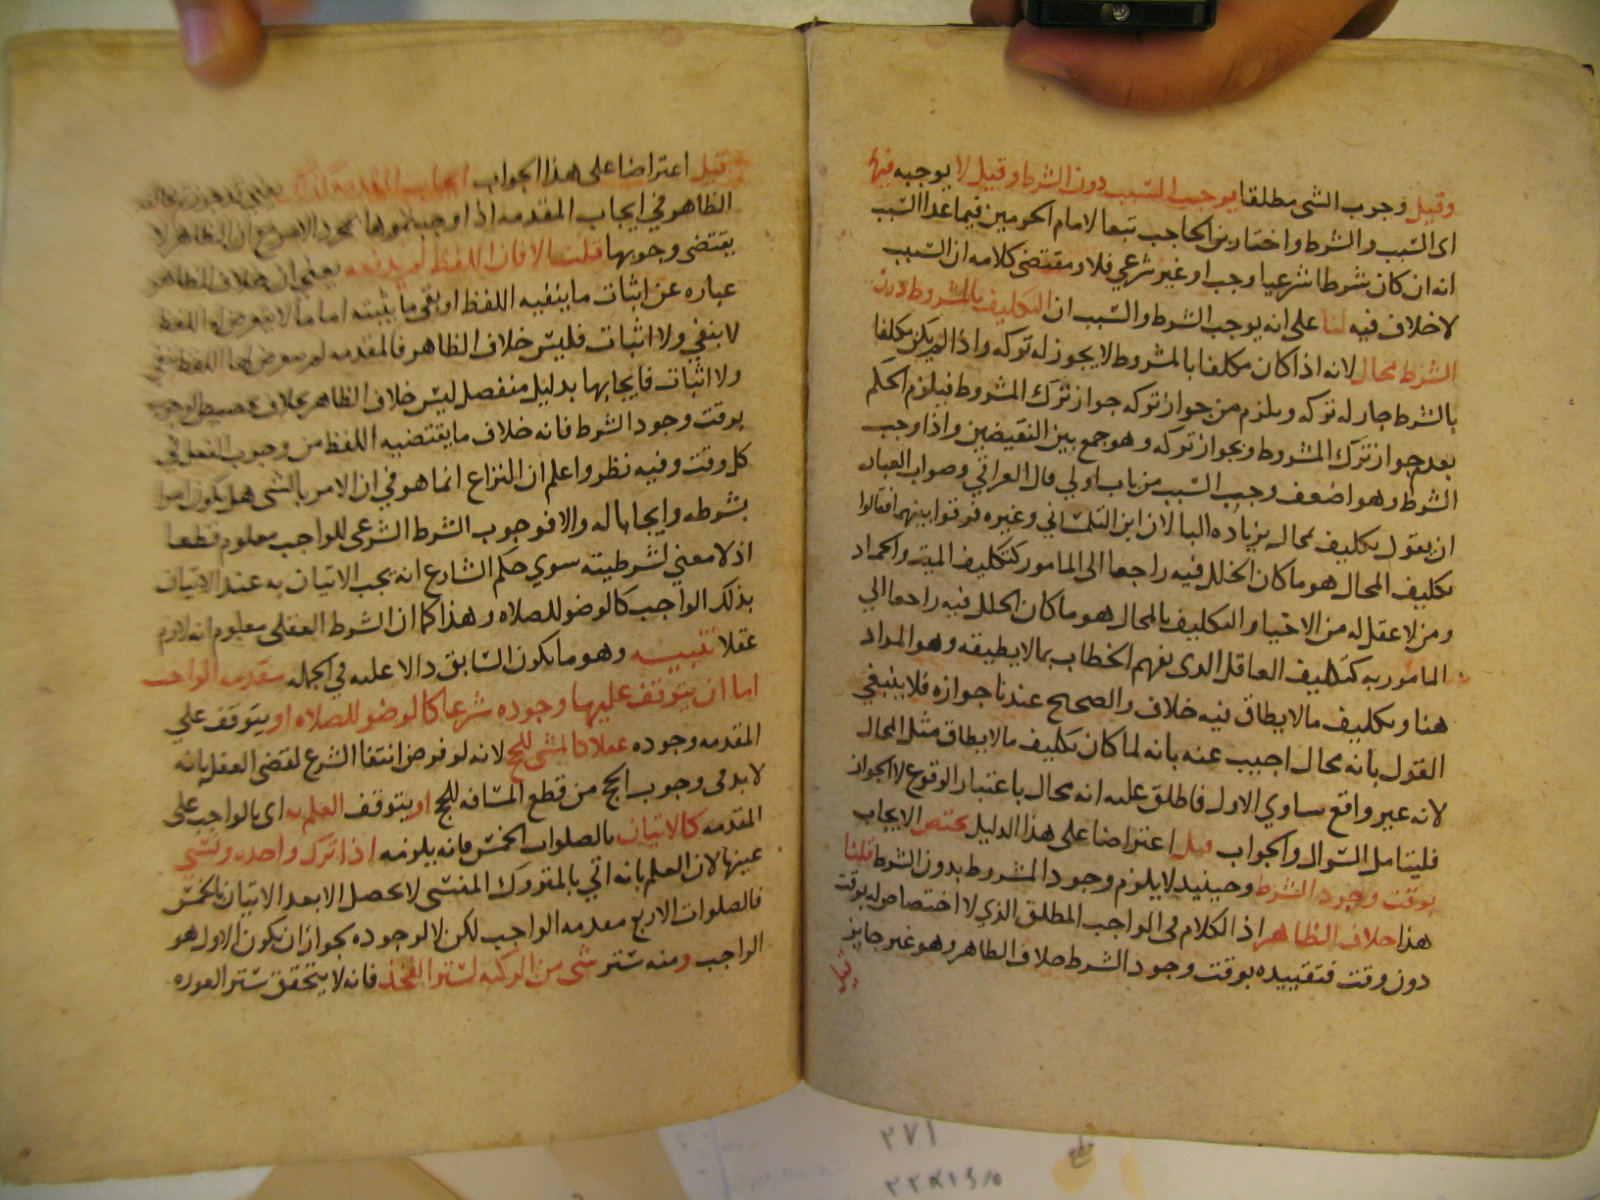 وقيل وجوب الشي مطلقا يوجب السبب دون الشرط وقيل لا يوجبه فيها
اي السبب والشرط واختار بن الحاجب تبعا لامام الحرمين فيما عدا السبب
انه ان كان شرطا شرعيا وجب او غير شرعي فلا ومقتضى كلامه ان السبب
لا خلاف فيه لنا على انه يوجب الشرط والسبب ان التكليف بالمشروط دون
الشرط محال لانه اذا كان مكلفا بالمشروط لا يجوز له تركه واذا لم يكن مكلفا
بالشرط جاز له تركه ويلزم من جواز تركه جواز ترك المشروط فيلزم الحكم
بعدم جواز ترك المشروط وبجواز تركه وهو جمع بين النقيضين واذا وجب
الشرط وهو اضعف وجب السبب من باب اولي قال العراقي وصواب العباره
ان يقول تكليف بمحال بزياده البا لان ابن التلمساني وغيره فرقوا بينهما فقالوا
تكليف المحال هو ما كان الخلل فيه راجعا الى المامور كتكليف الميت والجماد
ومن لا عقل له من الاحيا والتكليف بالمحال هو ما كان الخلل فيه راجعا الي
المامور به كتكليف العاقل الذي يفهم الخطاب بما لا يطيقه وهو المراد
هنا وتكليف ما لا يطاق فيه خلاف والصحيح عندنا جوازه فلا ينبغي
القول بانه محال اجيب عنه بانه لما كان تكليف ما لا يطاق مثل المحال
لانه غير واقع ساوي الاول فاطلق عليه انه محال باعتبار الوقوع لا الجواز
فليتامل السوال والجواب قيل اعتراضا على هذا الدليل يختص الايجاب
بوقت وجود الشرط وحينيذ لا يلزم وجود المشروط بدون الشرط قلنا
هذا خلاف الظاهر اذ الكلام في الواجب المطلق الذي لا اختصاص له بوقت
دون وقت فتقييده بوقت وجود الشرط خلاف الظاهر وهو غير جايز
قيل
قيل اعتراضا على هذا الجواب ايجاب المقدمه
الظاهر في ايجاب المقدمه اذ اوجبتموها بمجرد الامر مع ان الظاهر لا
يقتضى وجوبها قلت لا فان اللفظ لم يدفعه يعني ان خلاف الظاهر
عباره عن اثبات ما ينفيه اللفظ او نفي ما يثبته اما ما لا يتعرض له اللفظ
لا بنفي ولا اثبات فليس خلاف الظاهر فالمقدمه لم يتعرض لها اللفظ بنفي
ولا اثبات فايجابها بدليل منفصل ليس خلاف الظاهر بخلاف تخصيص الوجوب
بوقت وجود الشرط فانه خلاف ما يقتضيه اللفظ من وجوب الفعل في
كل وقت وفيه نظر واعلم ان النزاع انما هو في ان الامر بالشي هل يكون امرا
بشرطه وايجابا له والا فوجوب الشرط الشرعي للواجب معلوم قطعا
اذ لا معني لشرطيته سوي حكم الشارع انه يجب الاتيان به عند الاتيان
بذلك الواجب كالوضو للصلاه وهذا كما ان الشرط العقلي معلوم انه لازم
عقلا تنبيه وهو ما يكون السابق دالا عليه في الجمله مقدمه الواجب
اما ان يتوقف عليها وجوده شرعا كالوضو للصلاه او يتوقف علي
المقدمه وجوده عقلا كالمشي للحج لانه لو فرض انتفا الشرع لقضي العقل بانه
لا بد في وجوب الحج من قطع المسافه للحج او يتوقف العلم به اي بالواجب على
المقدمه كالاتيان بالصلوات الخمس فانه يلزمه اذا ترك واحده ونسي
عينها لان العلم بانه اتي بالمتروك المنسي لا يحصل الا بعد الاتيان بالخمس
فالصلوات الاربع مقدمه الواجب لكن لا لوجوده بجواز ان يكون الاول هو
الواجب ومنه ستر شي من الركبه لستر الفخذ فانه لا يتحقق ستر العوره
٢٧١